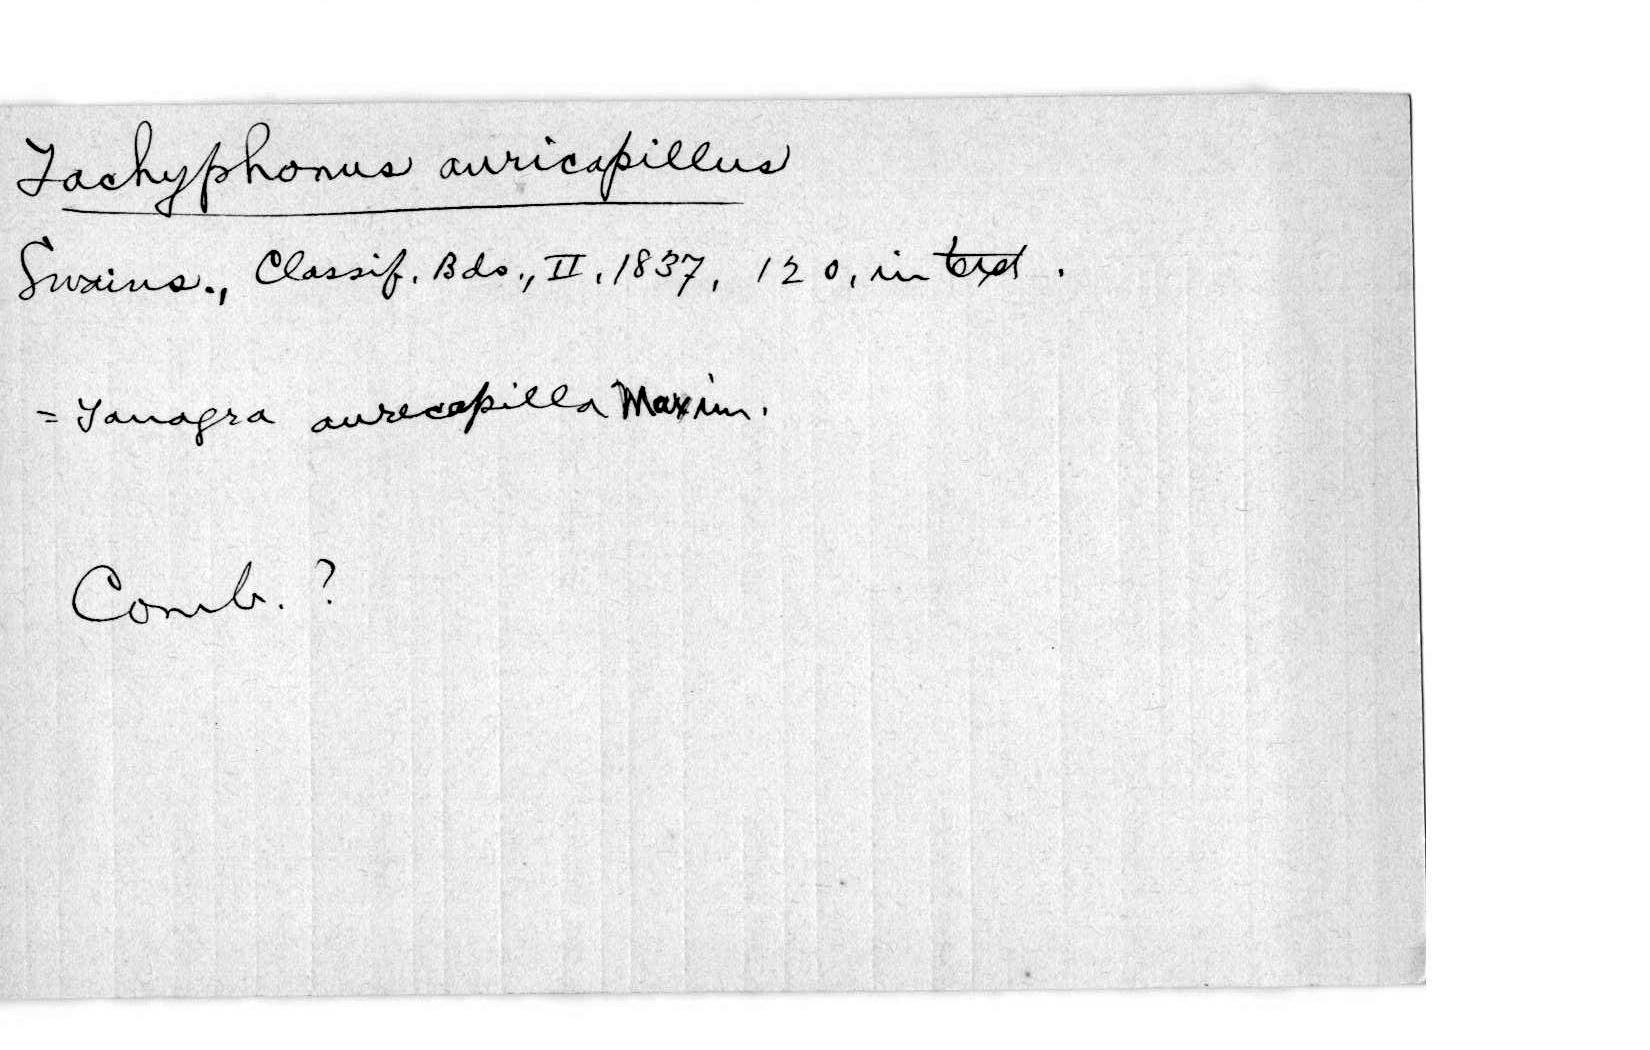 Tachyphonus auricapillus
Swains., Classif. Bds., II, 1837, 120, in text.
= Tanagra auricapilla Maxim.
Comb. ?